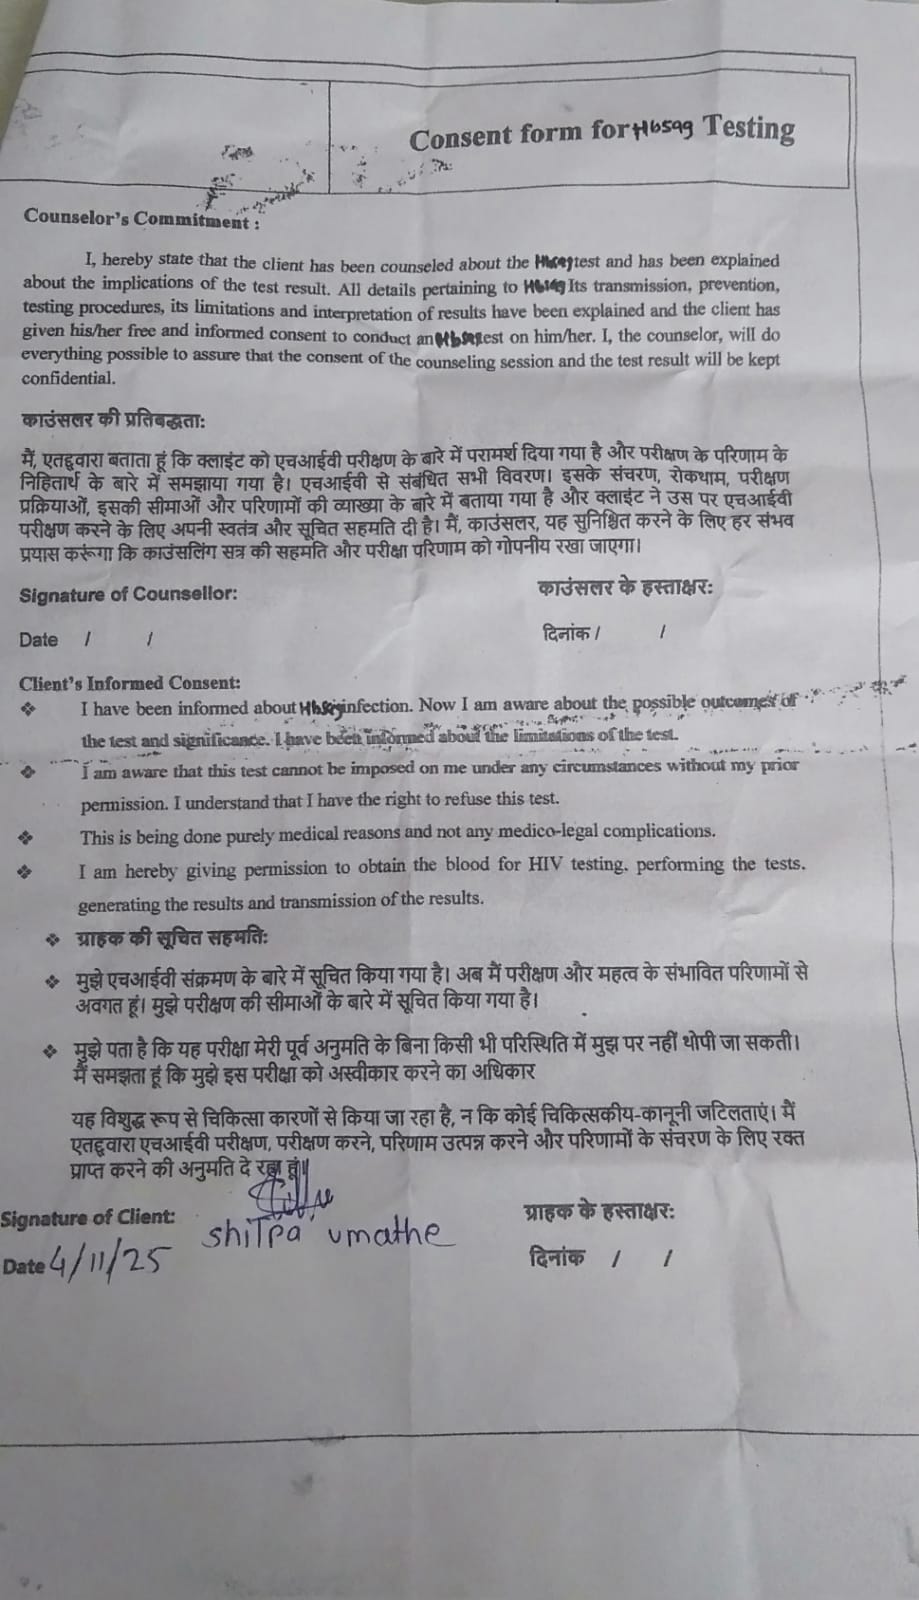 Consent form for Hbsag Testing
Counselor's Commitment :
I, hereby state that the client has been counseled about the Hbsag test and has been explained
about the implications of the test result. All details pertaining to Hbsag Its transmission, prevention,
testing procedures, its limitations and interpretation of results have been explained and the client has
given his/her free and informed consent to conduct an Hbsag test on him/her. I, the counselor, will do
everything possible to assure that the consent of the counseling session and the test result will be kept
confidential.
काउंसलर की प्रतिबद्धता:
मैं, एतद्द्वारा बताता हूं कि क्लाइंट को एचआईवी परीक्षण के बारे में परामर्श दिया गया है और परीक्षण के परिणाम के
निहितार्थ के बारे में समझाया गया है। एचआईवी से संबंधित सभी विवरण। इसके संचरण, रोकथाम, परीक्षण
प्रक्रियाओं, इसकी सीमाओं और परिणामों की व्याख्या के बारे में बताया गया है और क्लाइंट ने उस पर एचआईवी
परीक्षण करने के लिए अपनी स्वतंत्र और सूचित सहमति दी है। मैं, काउंसलर, यह सुनिश्चित करने के लिए हर संभव
प्रयास करूंगा कि काउंसलिंग सत्र की सहमति और परीक्षा परिणाम को गोपनीय रखा जाएगा।
Signature of Counsellor: काउंसलर के हस्ताक्षर:
Date / / दिनांक / /
Client's Informed Consent:
❖ I have been informed about Hbsag infection. Now I am aware about the possible outcomes of
the test and significance. I have been informed about the limitations of the test.
❖ I am aware that this test cannot be imposed on me under any circumstances without my prior
permission. I understand that I have the right to refuse this test.
❖ This is being done purely medical reasons and not any medico-legal complications.
❖ I am hereby giving permission to obtain the blood for HIV testing. performing the tests.
generating the results and transmission of the results.
❖ ग्राहक की सूचित सहमति:
❖ मुझे एचआईवी संक्रमण के बारे में सूचित किया गया है। अब मैं परीक्षण और महत्व के संभावित परिणामों से
अवगत हूं। मुझे परीक्षण की सीमाओं के बारे में सूचित किया गया है।
❖ मुझे पता है कि यह परीक्षा मेरी पूर्व अनुमति के बिना किसी भी परिस्थिति में मुझ पर नहीं थोपी जा सकती।
मैं समझता हूं कि मुझे इस परीक्षा को अस्वीकार करने का अधिकार
यह विशुद्ध रूप से चिकित्सा कारणों से किया जा रहा है, न कि कोई चिकित्सकीय-कानूनी जटिलताएं। मैं
एतद्द्वारा एचआईवी परीक्षण, परीक्षण करने, परिणाम उत्पन्न करने और परिणामों के संचरण के लिए रक्त
प्राप्त करने की अनुमति दे रहा हूं।
Signature of Client: ग्राहक के हस्ताक्षर:
shilpa umathe
Date 4/11/25 दिनांक / /